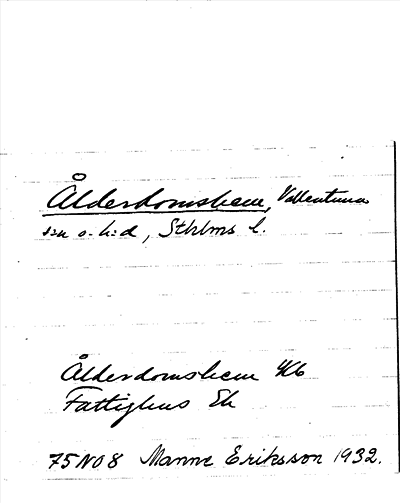 Ålderdomshem, Vallentuna
sn o. h:d, Sthlms l.
Ålderdomshem Kb
Fattighus Ek
75NO8 Manne Eriksson 1932.